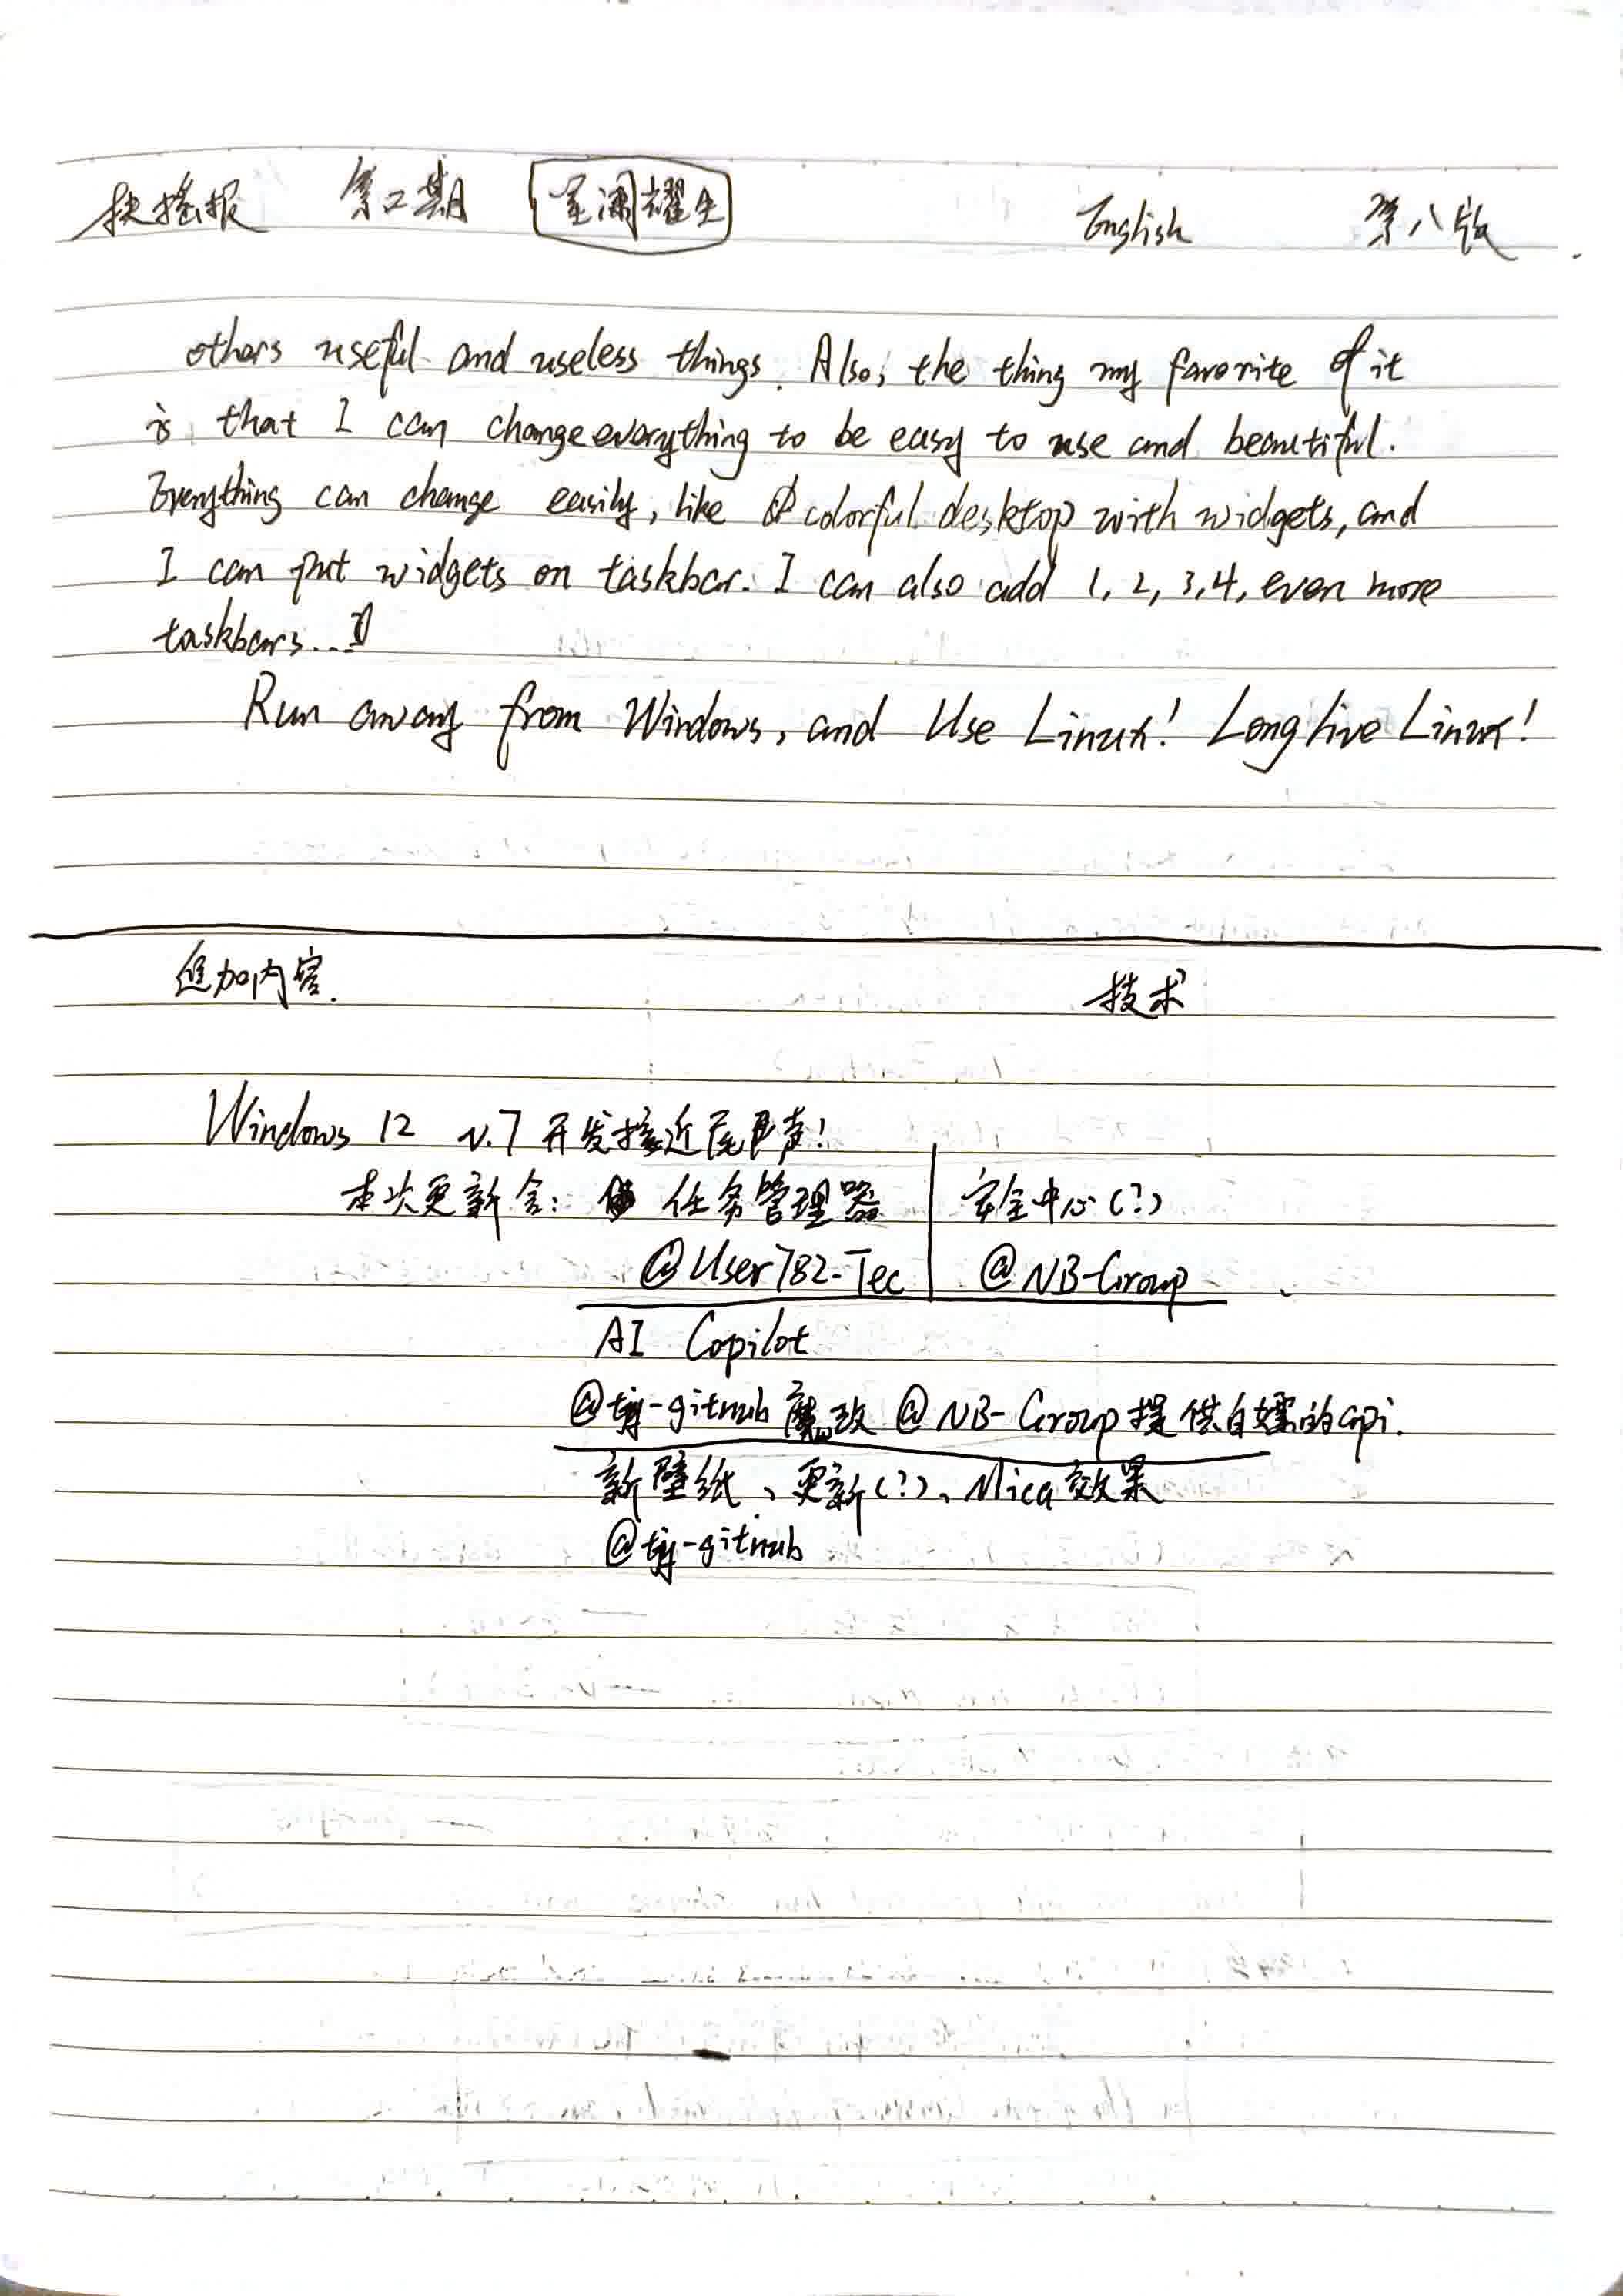 扶摇报 第二期 星澜耀生 English 第八版
others useful and useless things. Also, the thing my favorite of it
is that I can change everything to be easy to use and beautiful.
Everything can change easily, like colorful desktop with widgets, and
I can put widgets on taskbar. I can also add 1, 2, 3, 4, even more
taskbars...
Run away from Windows, and Use Linux! Long live Linux!
追加内容. 技术
Windows 12 v.7 开发接近尾声!
本次更新含: 任务管理器 安全中心(?)
@User782-Tec @NB-Group
AI Copilot
@tjy-gitnub 魔改 @NB-Group 提供白嫖的api.
新壁纸、更新(?)、Mica效果
@tjy-gitnub